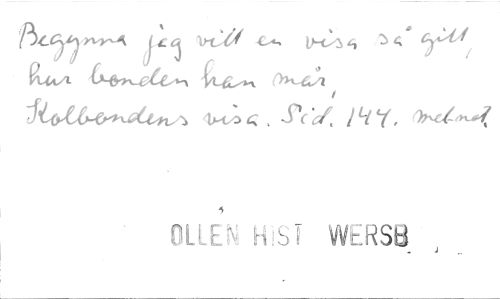 Begynna jag vill en visa så gill,
hur bonden han mår,
Kolbondens visa. Sid. 144. mel-not.
OLLÉN HIST WERSB